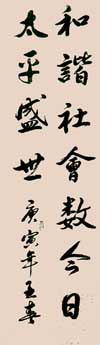 和諧社會数今日
太平盛世
庚寅年王春